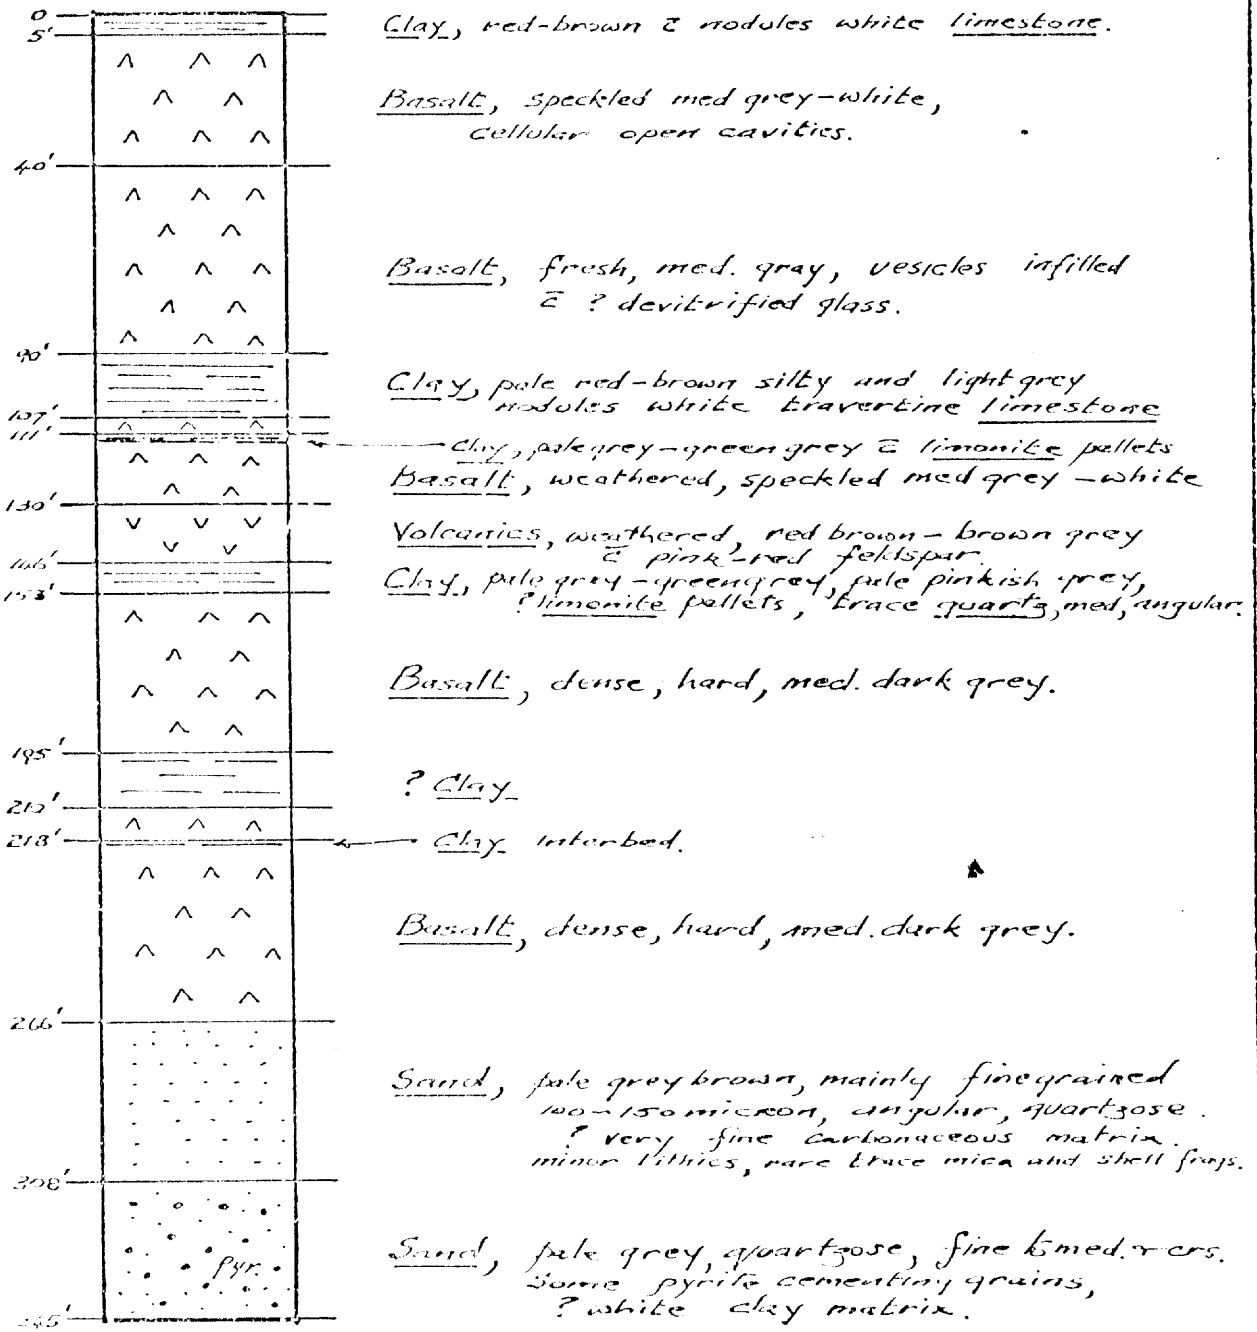 0
5'
Clay, red-brown c̄ nodules white limestone.
Basalt, speckled med grey-white,
cellular open cavities.
40'
Basalt, fresh, med. gray, vesicles infilled
c̄ ? devitrified glass.
90'
Clay, pale red-brown silty and light grey
nodules white travertine limestone
107'
111'
Clay, pale grey-green grey c̄ limonite pellets
Basalt, weathered, speckled med grey-white
130'
Volcanics, weathered, red brown-brown grey
c̄ pink-red feldspar.
146'
Clay, pale grey-green grey, pale pinkish grey,
? limonite pellets, trace quartz, med, angular.
153'
Basalt, dense, hard, med. dark grey.
195'
? Clay
210'
218'
Clay interbed.
Basalt, dense, hard, med. dark grey.
266'
Sand, pale grey brown, mainly fine grained
100-150 micron, angular, quartzose.
? very fine carbonaceous matrix.
minor lithics, rare trace mica and shell frags.
308'
Sand, pale grey, quartzose, fine to med. & crs.
Some pyrite cementing grains,
? white clay matrix.
pyr.